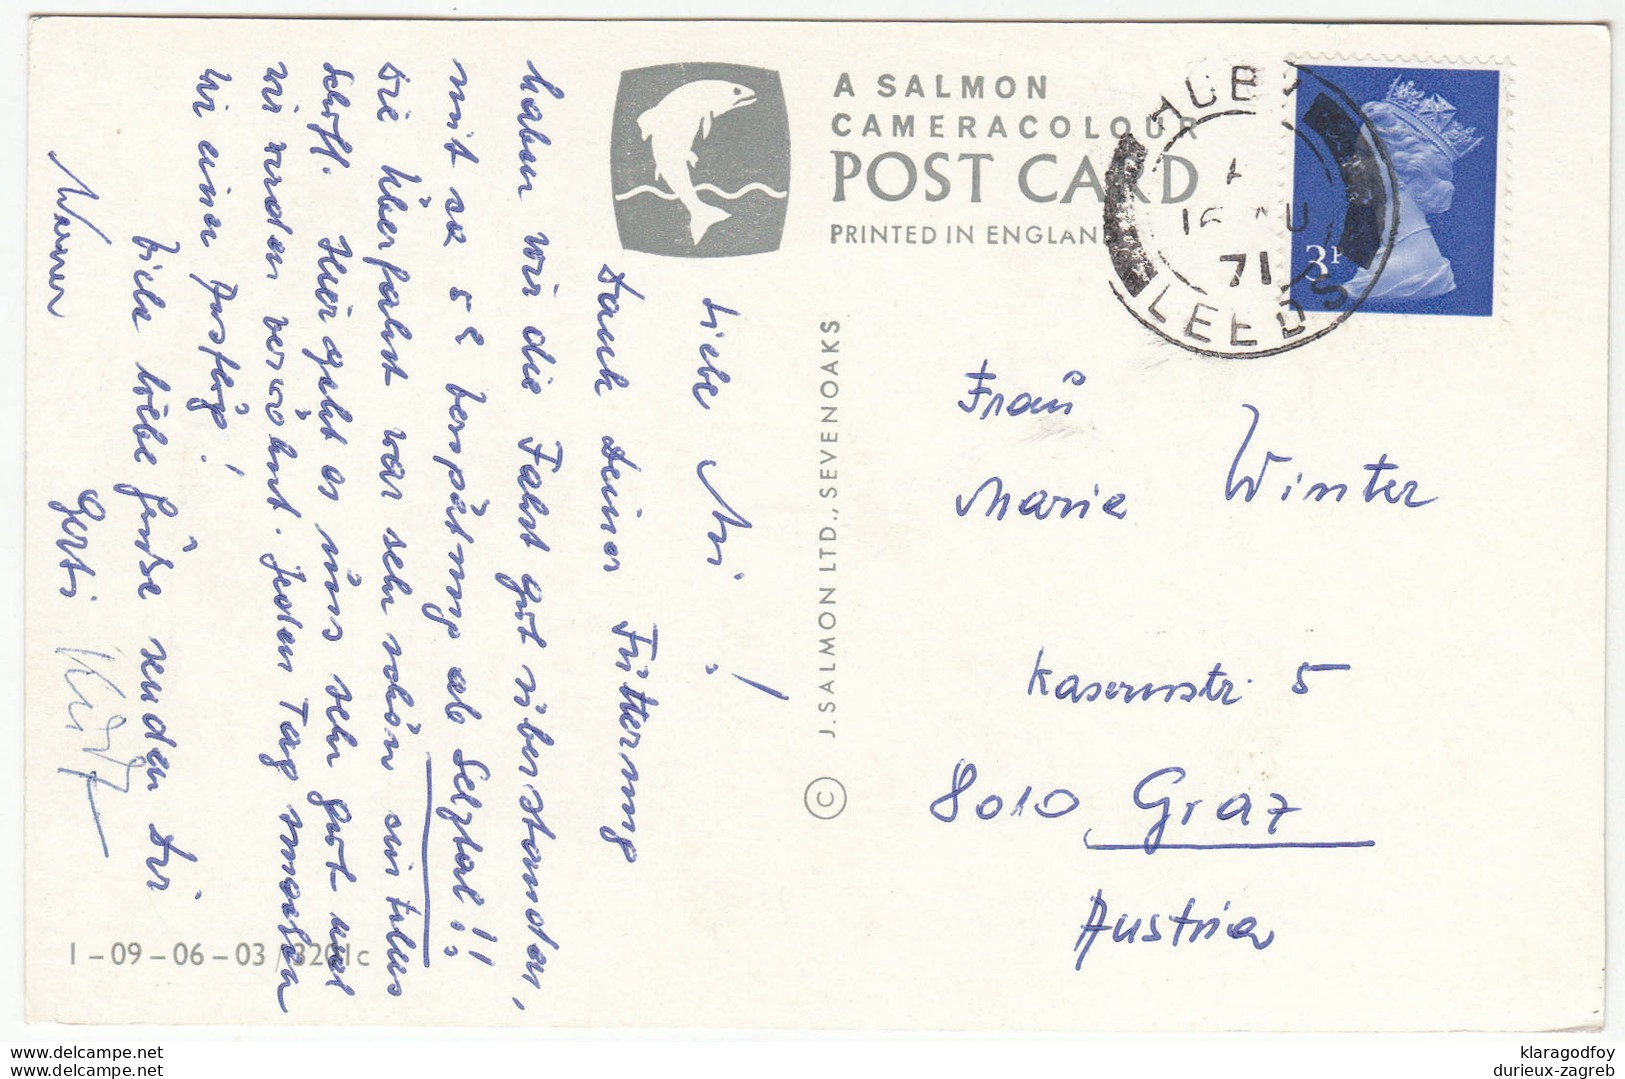 A SALMON
CAMERACOLOUR
POST CARD
PRINTED IN ENGLAND
HUBY
A
16 AU
71
LEEDS
3P
Liebe Mi!
Dank Deiner Fütterung
haben wir die Fahrt gut überstanden,
mit ca 5h Verspätung ab Selztal!!
Die Überfahrt war sehr schön ein tolles
Schiff. Hier geht es uns sehr gut und
wir werden verwöhnt. Jeden Tag machen
wir einen Ausflug!
Viele liebe Grüße senden Dir
Werner Gerti
J. SALMON LTD., SEVENOAKS ©
Frau
Maria Winter
Kasernstr. 5
8010 Graz
Austria
1-09-06-03/3201c
delcampe.net
delcampe.net
klaragodfoy
durieux-zagreb